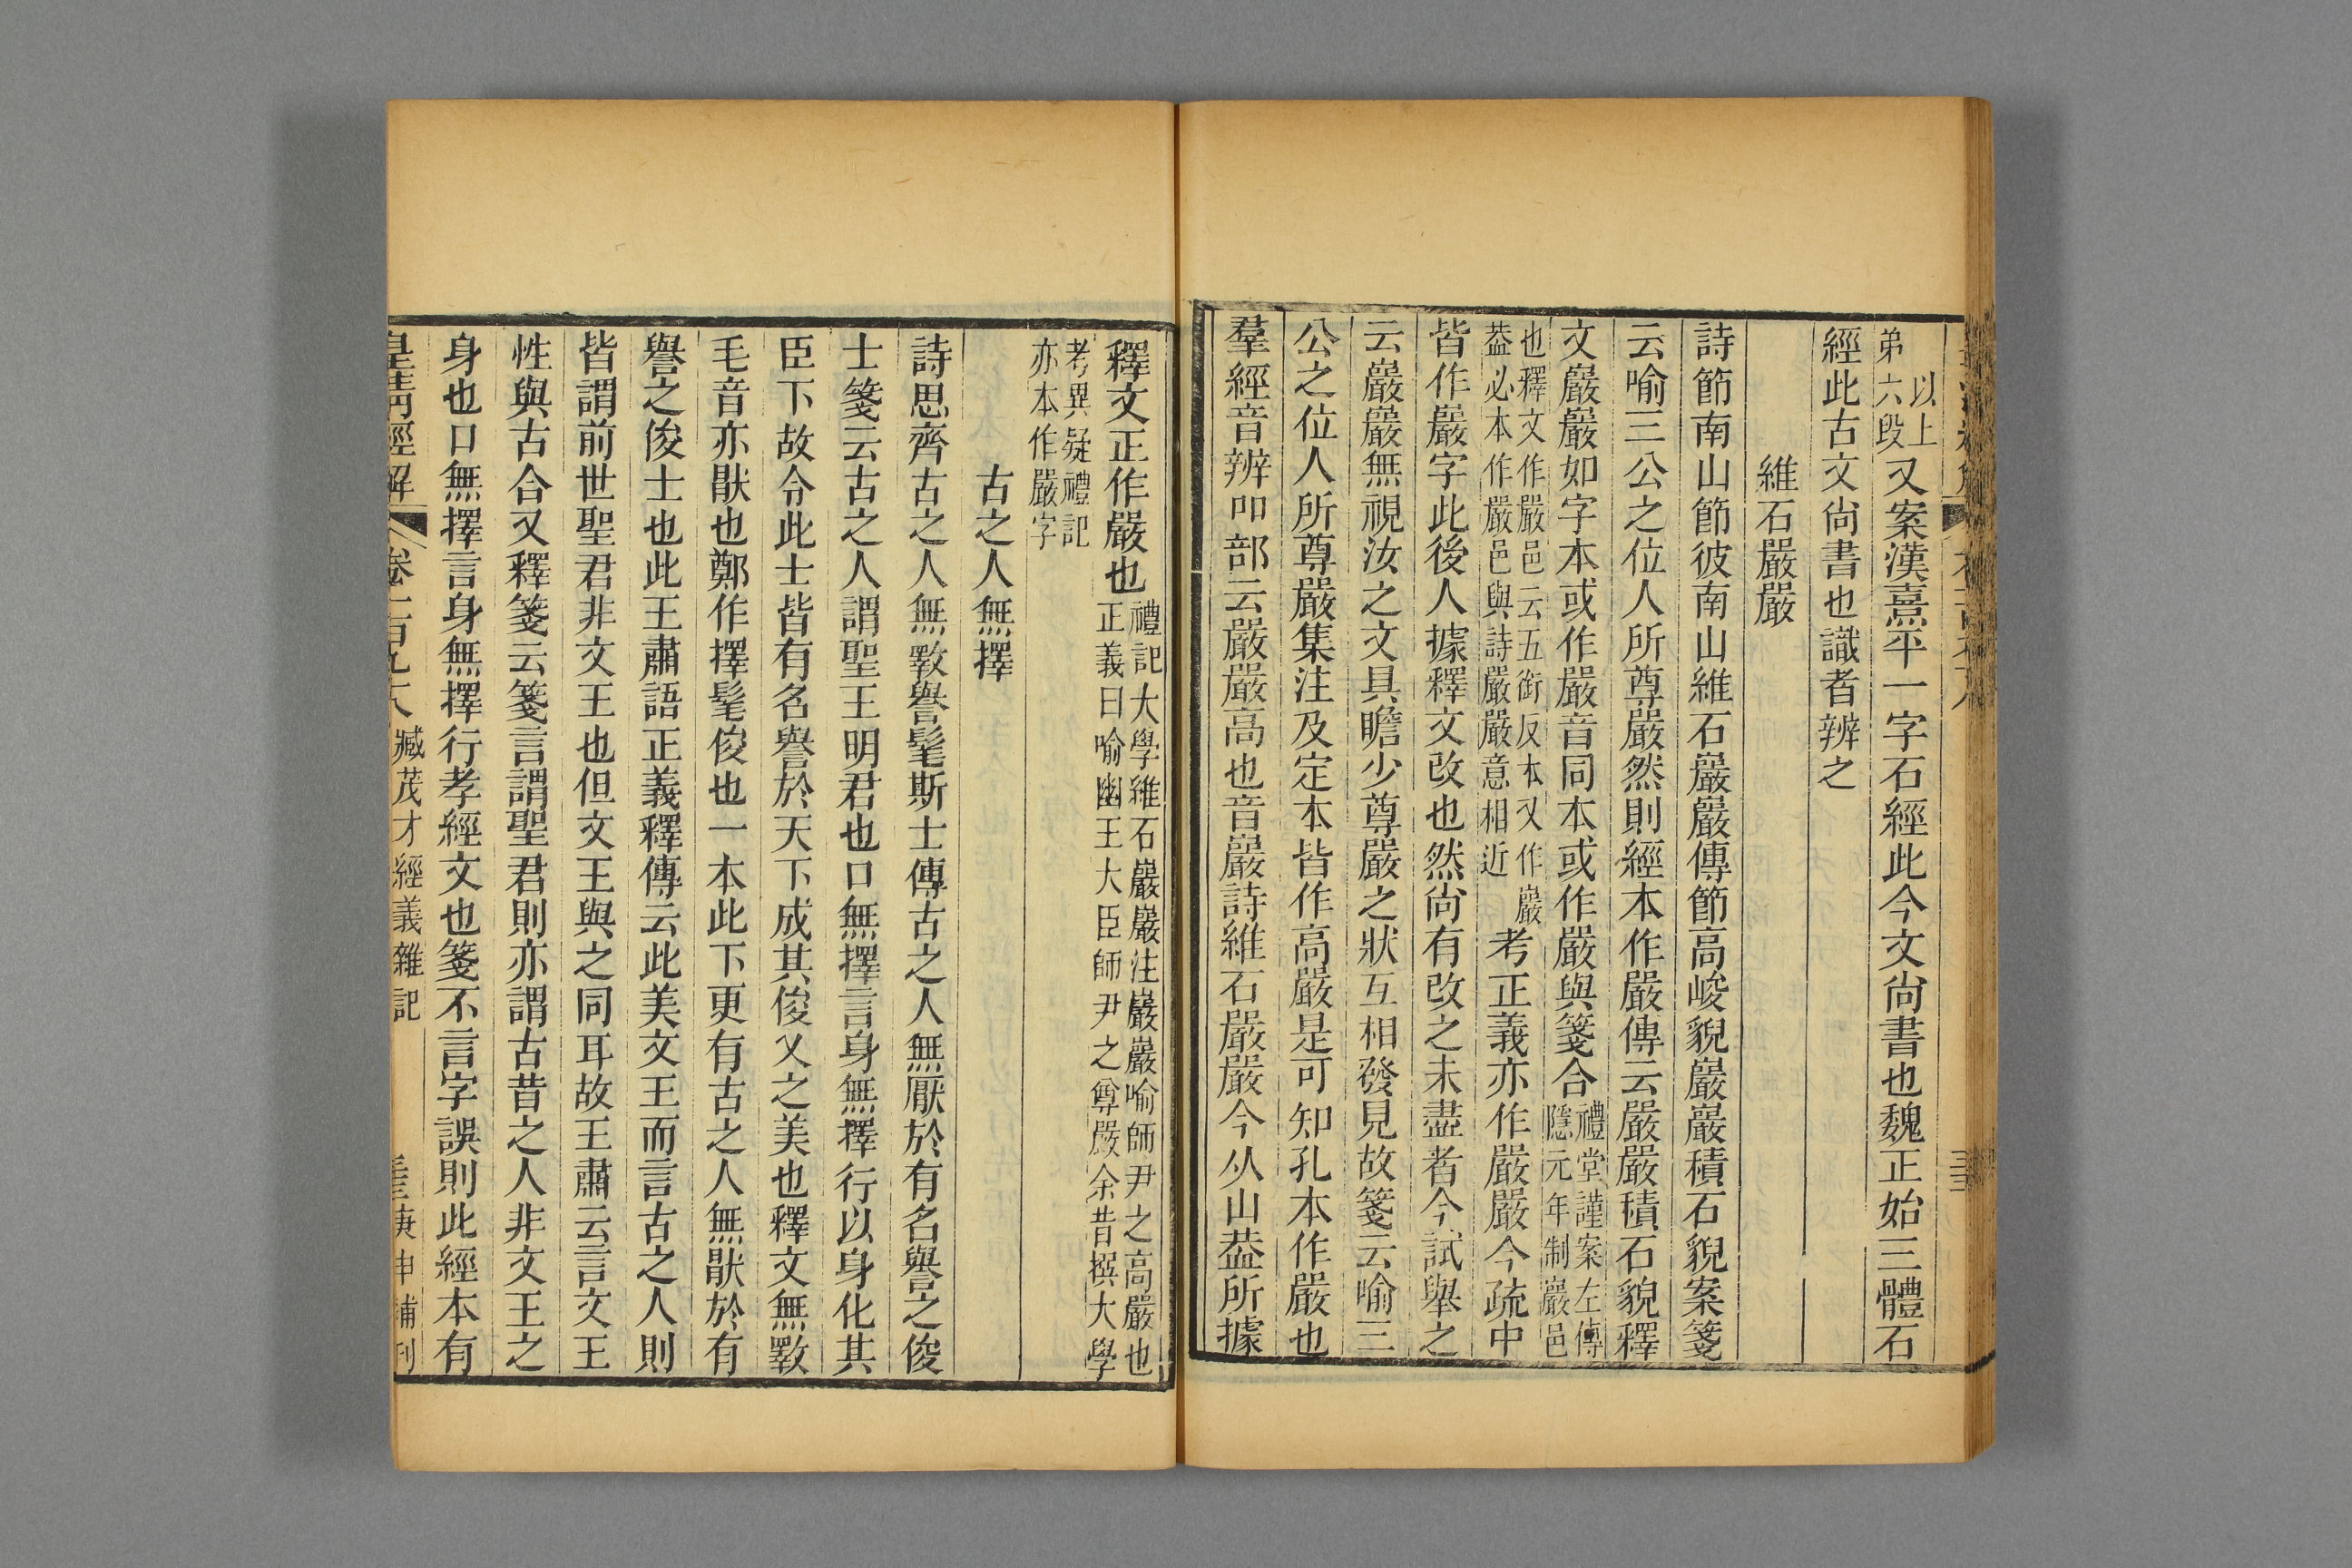 以上弟六段又案漢熹平一字石經此今文尙書也魏正始三體石
經此古文尙書也識者辨之
維石嚴嚴
詩節南山節彼南山維石巖巖傳節高峻貌巖巖積石貌案箋
云喻三公之位人所尊嚴然則經本作嚴傳云嚴嚴積石貌釋
文巖巖如字本或作嚴音同本或作嚴與箋合禮堂謹案左傳隱元年制巖邑
也釋文作嚴邑云五銜反本又作巖葢必本作嚴邑與詩嚴嚴意相近考正義亦作嚴嚴今疏中
皆作巖字此後人據釋文改也然尙有改之未盡者今試舉之
云巖巖無視汝之文具瞻少尊嚴之狀互相發見故箋云喻三
公之位人所尊嚴集注及定本皆作高嚴是可知孔本作嚴也
羣經音辨吅部云嚴嚴高也音巖詩維石嚴嚴今从山葢所據
釋文正作嚴也禮記大學維石巖巖注巖巖喻師尹之高嚴也正義曰喻幽王大臣師尹之尊嚴余昔撰大學
考異疑禮記亦本作嚴字
古之人無擇
詩思齊古之人無斁譽髦斯士傳古之人無厭於有名譽之俊
士箋云古之人謂聖王明君也口無擇言身無擇行以身化其
臣下故令此士皆有名譽於天下成其俊乂之美也釋文無斁
毛音亦猒也鄭作擇髦俊也一本此下更有古之人無猒於有
譽之俊士也此王肅語正義釋傳云此美文王而言古之人則
皆謂前世聖君非文王也但文王與之同耳故王肅云言文王
性與古合又釋箋云箋言謂聖君則亦謂古昔之人非文王之
身也口無擇言身無擇行孝經文也箋不言字誤則此經本有
皇清經解 卷二百九十八 臧茂才經義雜記 庚申補刊